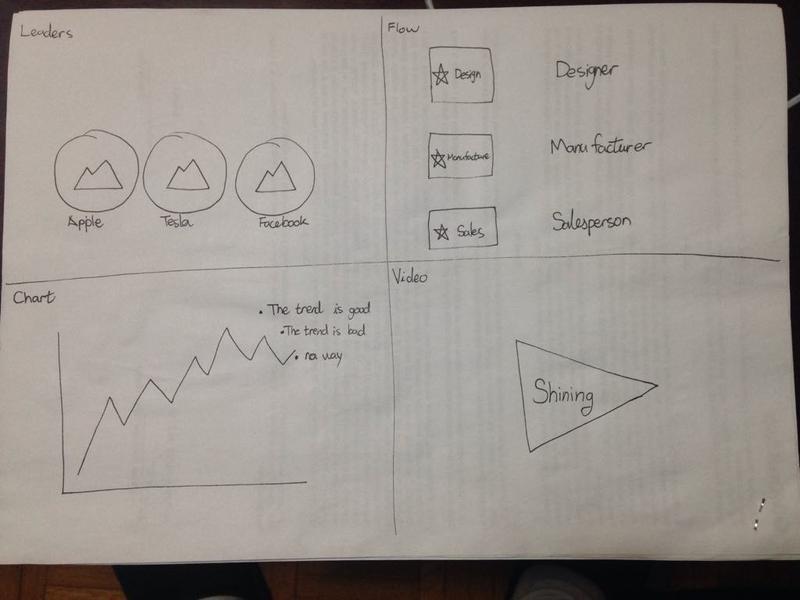 Leaders
Apple Tesla Facebook
Flow
Design Designer
Manufacture Manufacturer
Sales Salesperson
Chart
• The trend is good
• The trend is bad
• no way
Video
Shining